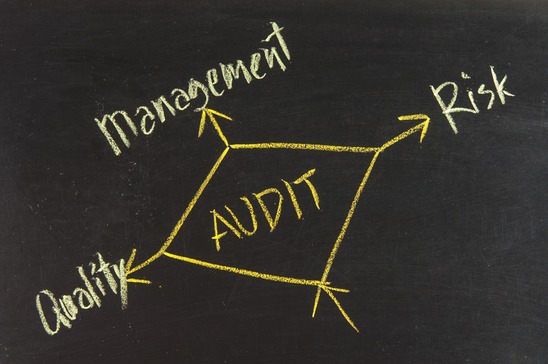 Management
Risk
AUDIT
Quality